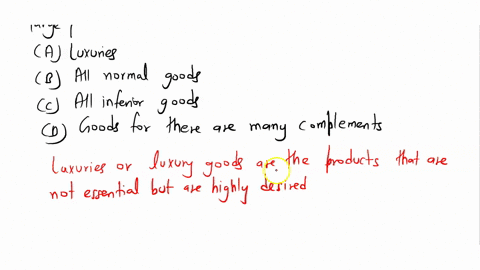 (A) Luxuries
(B) All normal goods
(C) All inferior goods
(D) Goods for there are many complements
Luxuries or luxury goods are the products that are
not essential but are highly desired